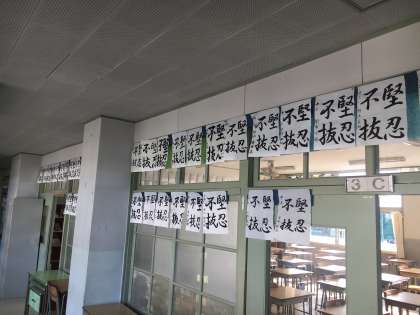 堅忍
不抜
堅忍
不抜
堅忍
不抜
堅忍
不抜
堅忍
不抜
堅忍
不抜
堅忍
不抜
堅忍
不抜
堅忍
不抜
堅忍
不抜
堅忍
不抜
3 C
堅忍
不抜
堅忍
不抜
堅忍
不抜
堅忍
不抜
堅忍
不抜
堅忍
不抜
堅忍
不抜
堅忍
不抜